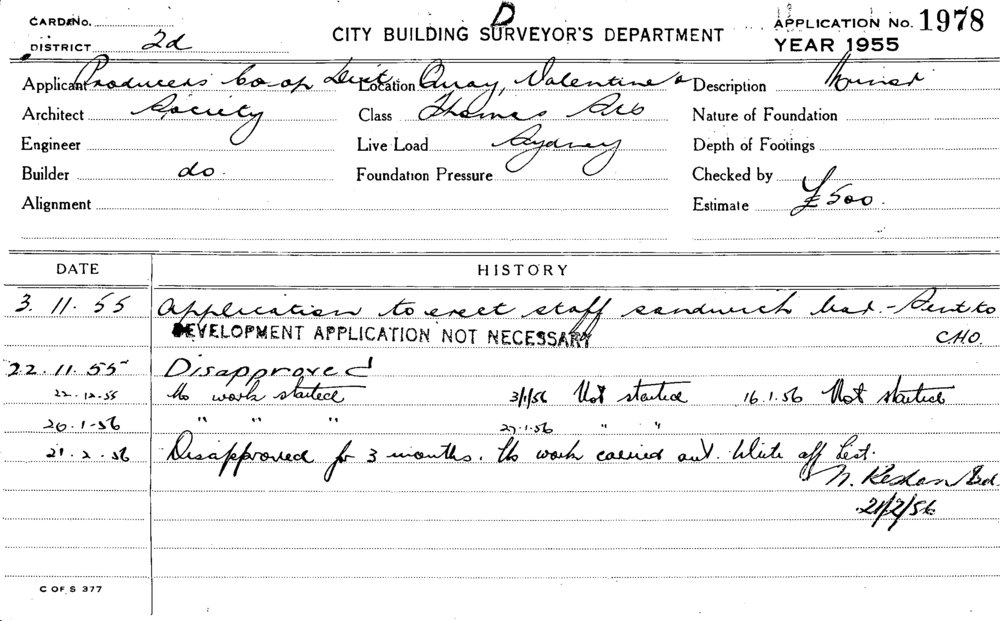 D
CARD No. CITY BUILDING SURVEYOR'S DEPARTMENT APPLICATION No. 1978
DISTRICT 2d YEAR 1955
Applicant Producers Co-op Dist Location Quay, Valentine & Description Minor
Architect Society Class Thomas Sts Nature of Foundation
Engineer Live Load Sydney Depth of Footings
Builder do. Foundation Pressure Checked by
Alignment Estimate £500.
DATE HISTORY
3.11.55 Application to erect staff sandwich bar. - Sent to
DEVELOPMENT APPLICATION NOT NECESSARY CHO.
22.11.55 Disapproved
22.12.55 No work started 3/1/56 Not started 16.1.56 Not started
20.1.56 " " " 27.1.56 " "
21.2.56 Disapproved for 3 months. No work carried out. Write off List.
N.
21/2/56
C OF S 377